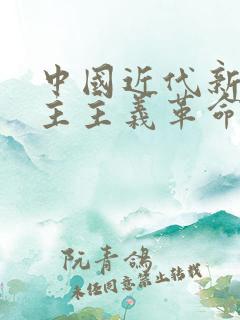 中國近代新
主主義革命
阮青鴿
未经同意禁止转载